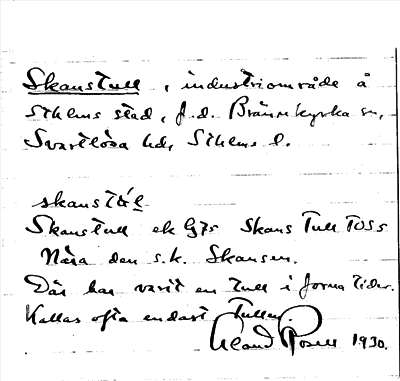 Skanstull, industriområde å
Sthlms stad, f.d. Brännkyrka sn,
Svartlösa hd, Sthlms l.
skanstúl
Skanstull ek G7r Skans Tull TOSS
Nära den s.k. Skansen.
Där har varit en tull i forna tider.
Kallas ofta endast Tullen.
Roland Rosell 1930.